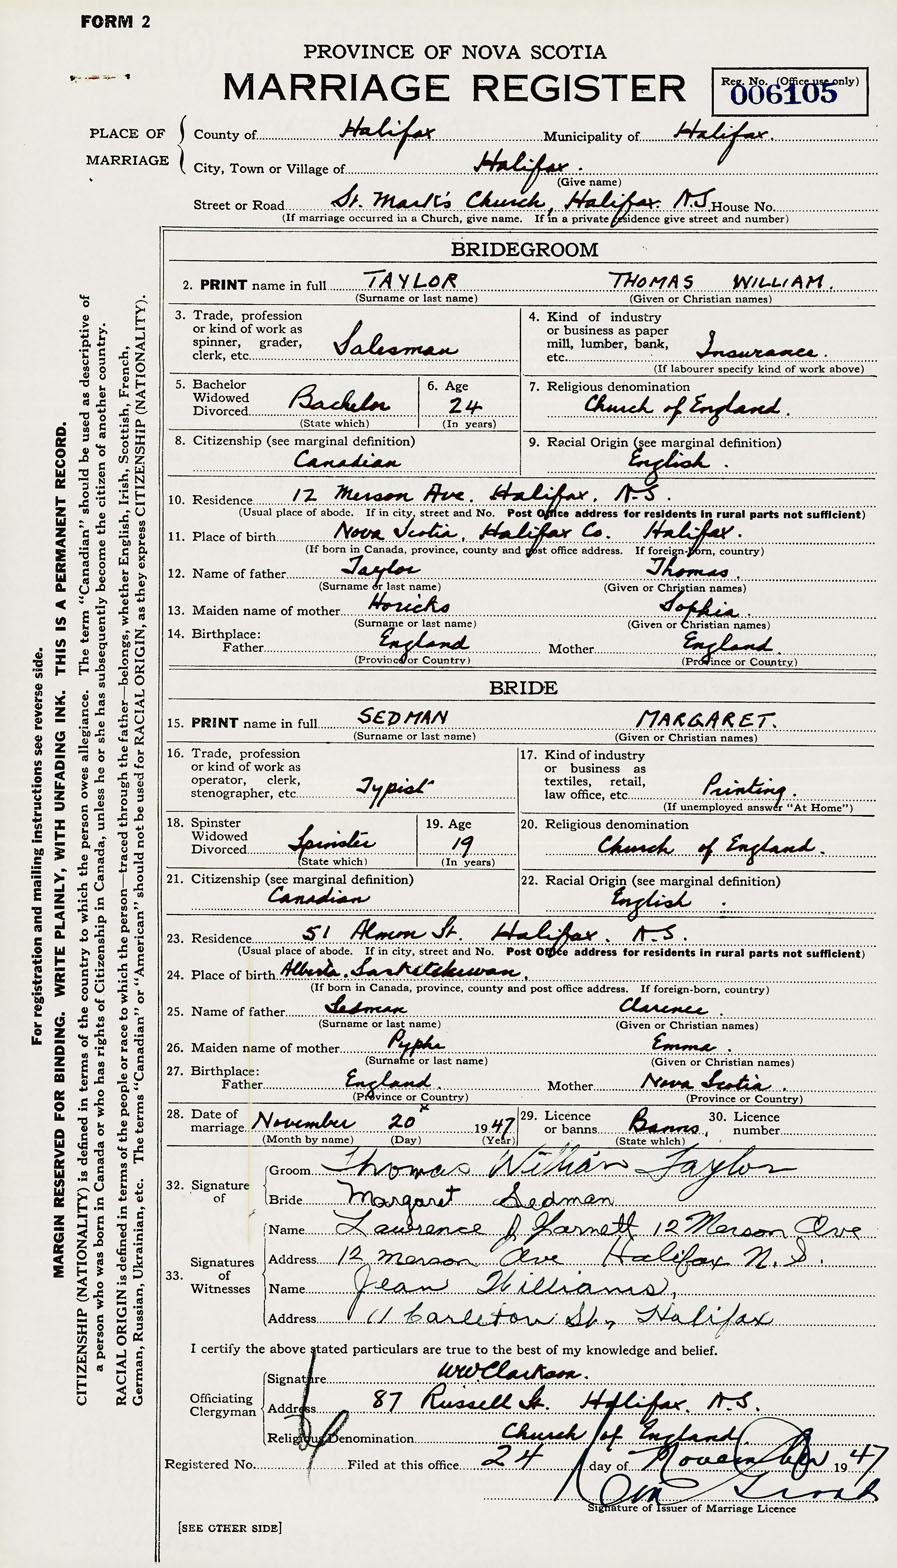 FORM 2
PROVINCE OF NOVA SCOTIA
MARRIAGE REGISTER
Reg. No. (Office use only)
006105
PLACE OF MARRIAGE
County of Halifax Municipality of Halifax.
City, Town or Village of Halifax.
(Give name)
Street or Road St. Mark's Church, Halifax. N.S. House No.
(If marriage occurred in a Church, give name. If in a private residence give street and number)
BRIDEGROOM
2. PRINT name in full TAYLOR THOMAS WILLIAM.
(Surname or last name) (Given or Christian names)
3. Trade, profession
or kind of work as
spinner, grader,
clerk, etc. Salesman
4. Kind of industry
or business as paper
mill, lumber, bank,
etc. Insurance.
(If labourer specify kind of work above)
5. Bachelor
Widowed
Divorced Bachelor
(State which)
6. Age
24
(In years)
7. Religious denomination
Church of England.
8. Citizenship (see marginal definition)
Canadian
9. Racial Origin (see marginal definition)
English.
10. Residence 12 Merson Ave. Halifax. N.S.
(Usual place of abode. If in city, street and No. Post Office address for residents in rural parts not sufficient)
11. Place of birth Nova Scotia, Halifax Co. Halifax.
(If born in Canada, province, county and post office address. If foreign-born, country)
12. Name of father Taylor Thomas.
(Surname or last name) (Given or Christian names)
13. Maiden name of mother Horicks Sophia.
(Surname or last name) (Given or Christian names)
14. Birthplace:
Father England Mother England
(Province or Country) (Province or Country)
BRIDE
15. PRINT name in full SEDMAN MARGARET.
(Surname or last name) (Given or Christian names)
16. Trade, profession
or kind of work as
operator, clerk,
stenographer, etc. Typist
17. Kind of industry
or business as
textiles, retail,
law office, etc. Printing.
(If unemployed answer "At Home")
18. Spinster
Widowed
Divorced Spinster
(State which)
19. Age
19
(In years)
20. Religious denomination
Church of England.
21. Citizenship (see marginal definition)
Canadian
22. Racial Origin (see marginal definition)
English.
23. Residence 51 Almon St. Halifax. N.S.
(Usual place of abode. If in city, street and No. Post Office address for residents in rural parts not sufficient)
24. Place of birth Alberta. Sasketchewan,
(If born in Canada, province, county and post office address. If foreign-born, country)
25. Name of father Sedman Clarence.
(Surname or last name) (Given or Christian names)
26. Maiden name of mother Emma.
(Surname or last name) (Given or Christian names)
27. Birthplace:
Father England. Mother Nova Scotia.
(Province or Country) (Province or Country)
28. Date of
marriage November 20 1947
(Month by name) (Day) (Year)
29. Licence
or banns Banns,
(State which)
30. Licence
number
32. Signature of
Groom Thomas William Taylor
Bride Margaret Sedman
33. Signatures of Witnesses
Name Lawrence J Yarnett 12 Merson Ave
Address 12 merson Ave Halifax N.S.
Name Jean Williams,
Address 11 Carleton St., Halifax
I certify the above stated particulars are true to the best of my knowledge and belief.
Officiating Clergyman
Signature WW Clarkson.
Address 87 Russell St. Halifax. N.S.
Religious Denomination Church of England.
Registered No. Filed at this office 24 day of November 1947
Signature of Issuer of Marriage Licence
[SEE OTHER SIDE]
For registration and mailing instructions see reverse side.
MARGIN RESERVED FOR BINDING. WRITE PLAINLY, WITH UNFADING INK. THIS IS A PERMANENT RECORD.
CITIZENSHIP (NATIONALITY) is defined in terms of the country to which the person owes allegiance. The term "Canadian" should be used as descriptive of
a person who was born in Canada or who has rights of Citizenship in Canada, unless he or she has subsequently become the citizen of another country.
RACIAL ORIGIN is defined in terms of the people or race to which the person—traced through the father—belongs, whether English, Irish, Scottish, French,
German, Russian, Ukrainian, etc. The terms "Canadian" or "American" should not be used for RACIAL ORIGIN, as they express CITIZENSHIP (NATIONALITY).